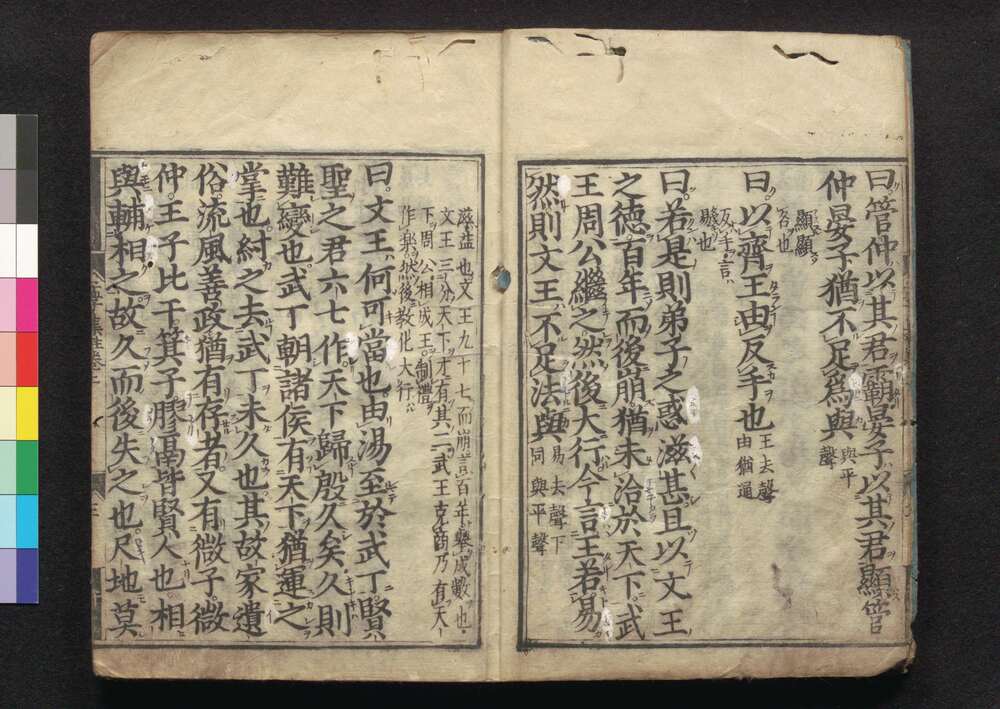 曰管仲以其君霸晏子以其君顯管
仲晏子猶不足爲與 與平
聲
顯顯
名也
曰以齊王由反手也 王去聲
由猶通
反手言
易也
曰若是則弟子之惑滋甚且以文王
之德百年而後崩猶未洽於天下武
王周公繼之然後大行今言王若易
然則文王不足法與 易去聲下
同與平聲
滋益也文王九十七而崩言百年舉成數也
文王三分天下才有其二武王克商乃有天
下周公相成王制禮
作樂然後教化大行
曰文王何可當也由湯至於武丁賢
聖之君六七作天下歸殷久矣久則
難變也武丁朝諸侯有天下猶運之
掌也紂之去武丁未久也其故家遺
俗流風善政猶有存者又有微子微
仲王子比干箕子膠鬲皆賢人也相
與輔相之故久而後失之也尺地莫